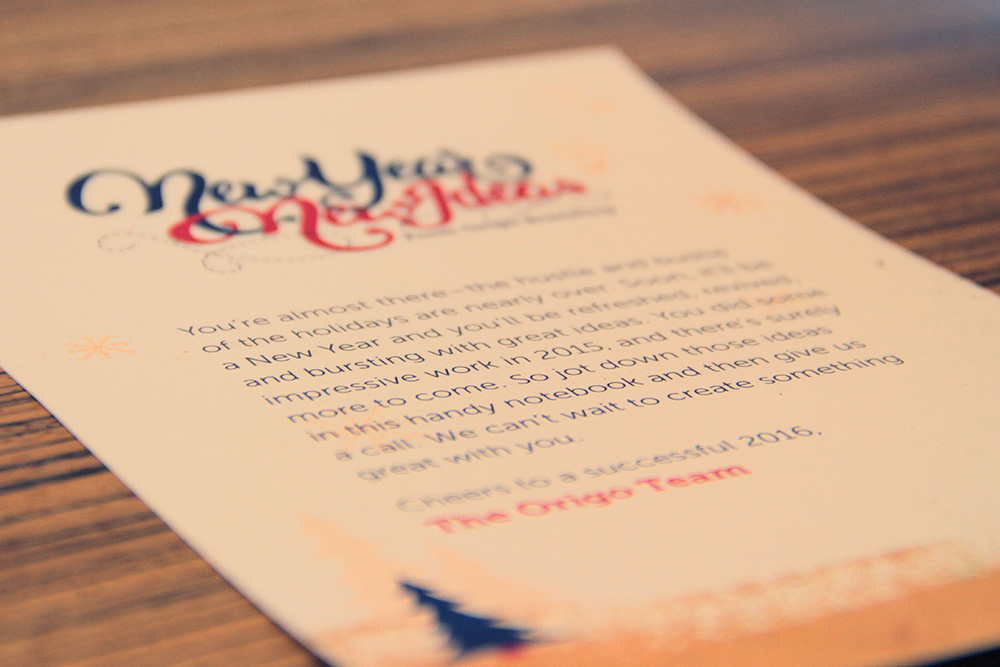 New Year
New Ideas
From Origo Branding
You're almost there–the hustle and bustle
of the holidays are nearly over. Soon, it'll be
a New Year and you'll be refreshed, revived,
and bursting with great ideas. You did some
impressive work in 2015, and there's surely
more to come. So jot down those ideas
in this handy notebook and then give us
a call. We can't wait to create something
great with you.
Cheers to a successful 2016,
The Origo Team